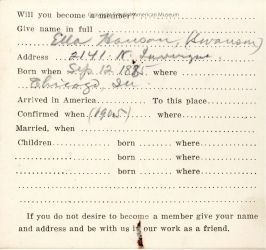 Will you become a member
Give name in full
Ella Hanson, (Swanson)
Address 2141 N.
Born when Sep. 12 1885 where
Chicago Ill
Arrived in America To this place
Confirmed when (1905) where
Married, when
Children born where
born where
born where
born where
If you do not desire to become a member give your name
and address and be with us in our work as a friend.